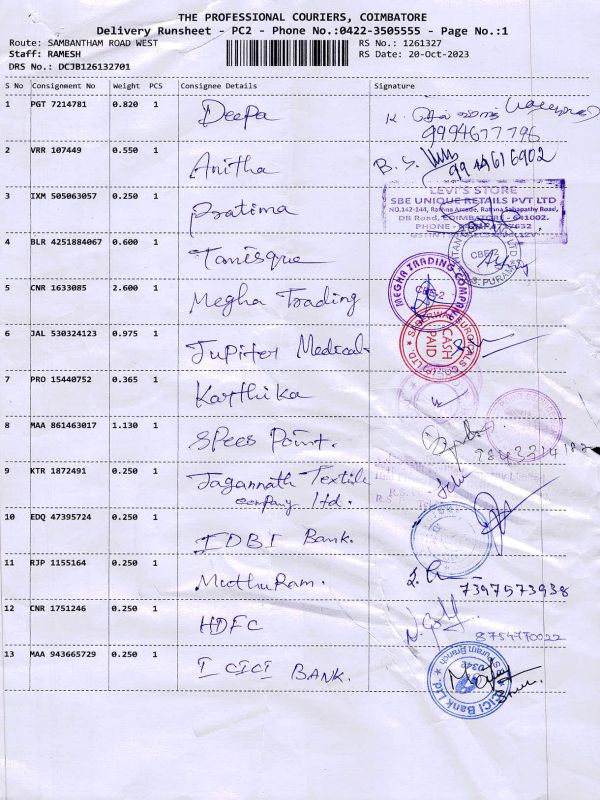 THE PROFESSIONAL COURIERS, COIMBATORE
Delivery Runsheet - PC2 - Phone No.:0422-3505555 - Page No.:1
Route: SAMBANTHAM ROAD WEST RS No.: 1261327
Staff: RAMESH RS Date: 20-Oct-2023
DRS No.: DCJB126132701
S No Consignment No Weight PCS Consignee Details Signature
1 PGT 7214781 0.820 1 Deepa K.
9994677796
2 VRR 107449 0.550 1 Anitha B. S. 9944616902
3 IXM 505063057 0.250 1 Pratima
LEVI'S STORE
SBE UNIQUE RETAILS PVT LTD
NO.142-144, Ratna Arcade, Ratna Sabapathy Road,
DB Road, COIMBATORE - 641002.
4 BLR 4251884067 0.600 1 Tanisque
CBE
R.S. PURAM
5 CNR 1633085 2.600 1 Megha Trading MEGHA TRADING COMPANY
CBE-2
6 JAL 530324123 0.975 1 Jupiter Medical SURGICALS
CASH
PAID
7 PRO 15440752 0.365 1 Karthika
8 MAA 861463017 1.130 1 Spees Point.
9 KTR 1872491 0.250 1 Jagannath Textile
company ltd.
10 EDQ 47395724 0.250 1 IDBI Bank.
11 RJP 1155164 0.250 1 MuthuRam. 7397573938
12 CNR 1751246 0.250 1 HDFC 8754770022
13 MAA 943665729 0.250 1 ICICI BANK. ICICI Bank Ltd.
0342